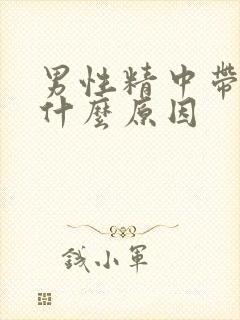 男性精中帶
什麼原因
錢小軍